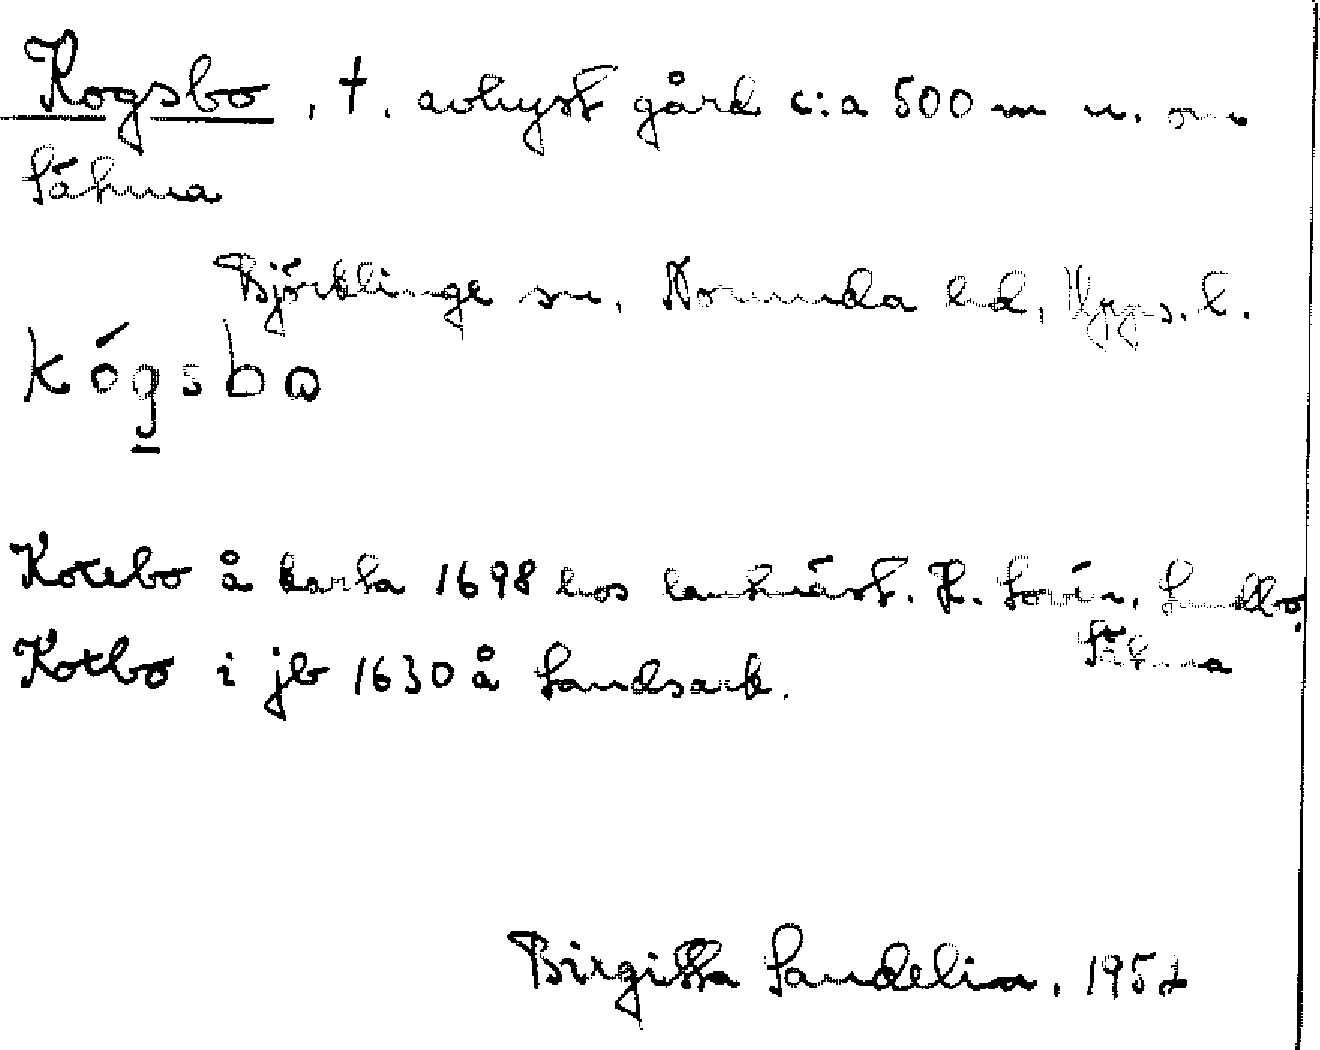 Kogsbo, t. avhyst gård c:a 500 m n. om
Sätuna
Björklinge sn. Norunda hd, Upps. l.
kógsbo
Kotebo å karta 1698 hos lantbäst. H. Lovén, Sandbo,
Sätuna
Kotbo i jb 1630 å Landsark.
Birgitta Sandelin, 1952